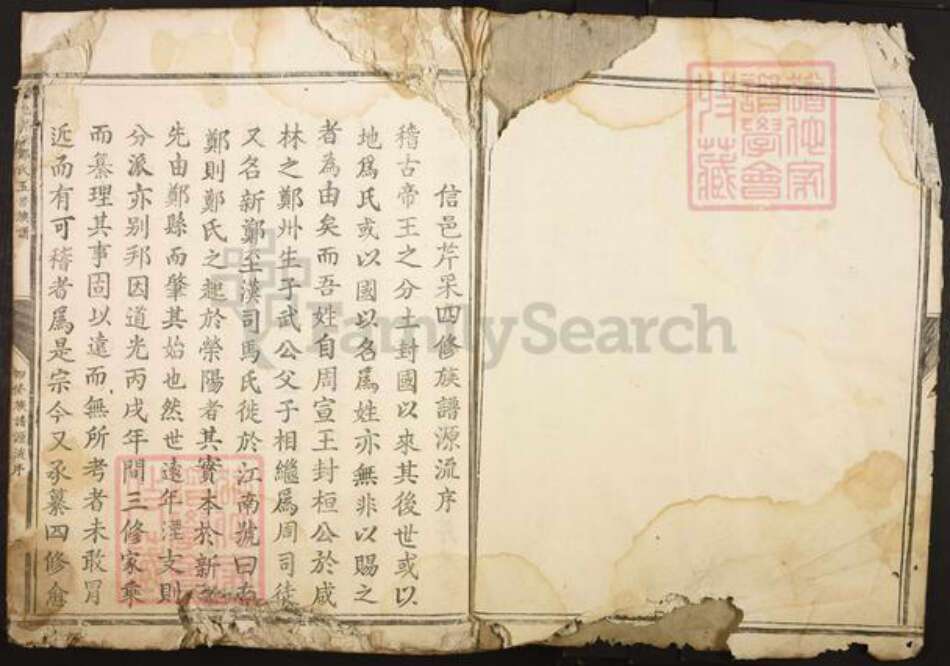 信邑芹采四修族譜源流序
稽古帝王之分土封國以來其後世或以
地為氏或以國以名為姓亦無非以賜之
者為由矣而吾姓自周宣王封桓公於咸
林之鄭州生子武公父子相繼為周司徒
又名新鄭至漢司馬氏徙於江南號曰南
鄭則鄭氏之起於滎陽者其實本於新
先由鄭縣而肇其始也然世遠年湮支則
分派亦別邦因道光丙戌年間三修家乘
而纂理其事固以遠而無所考者未敢冒
近而有可稽者為是宗今又承纂四修俞
氏五修族譜
四修族譜源流序
譜學會
收藏
FamilySearch